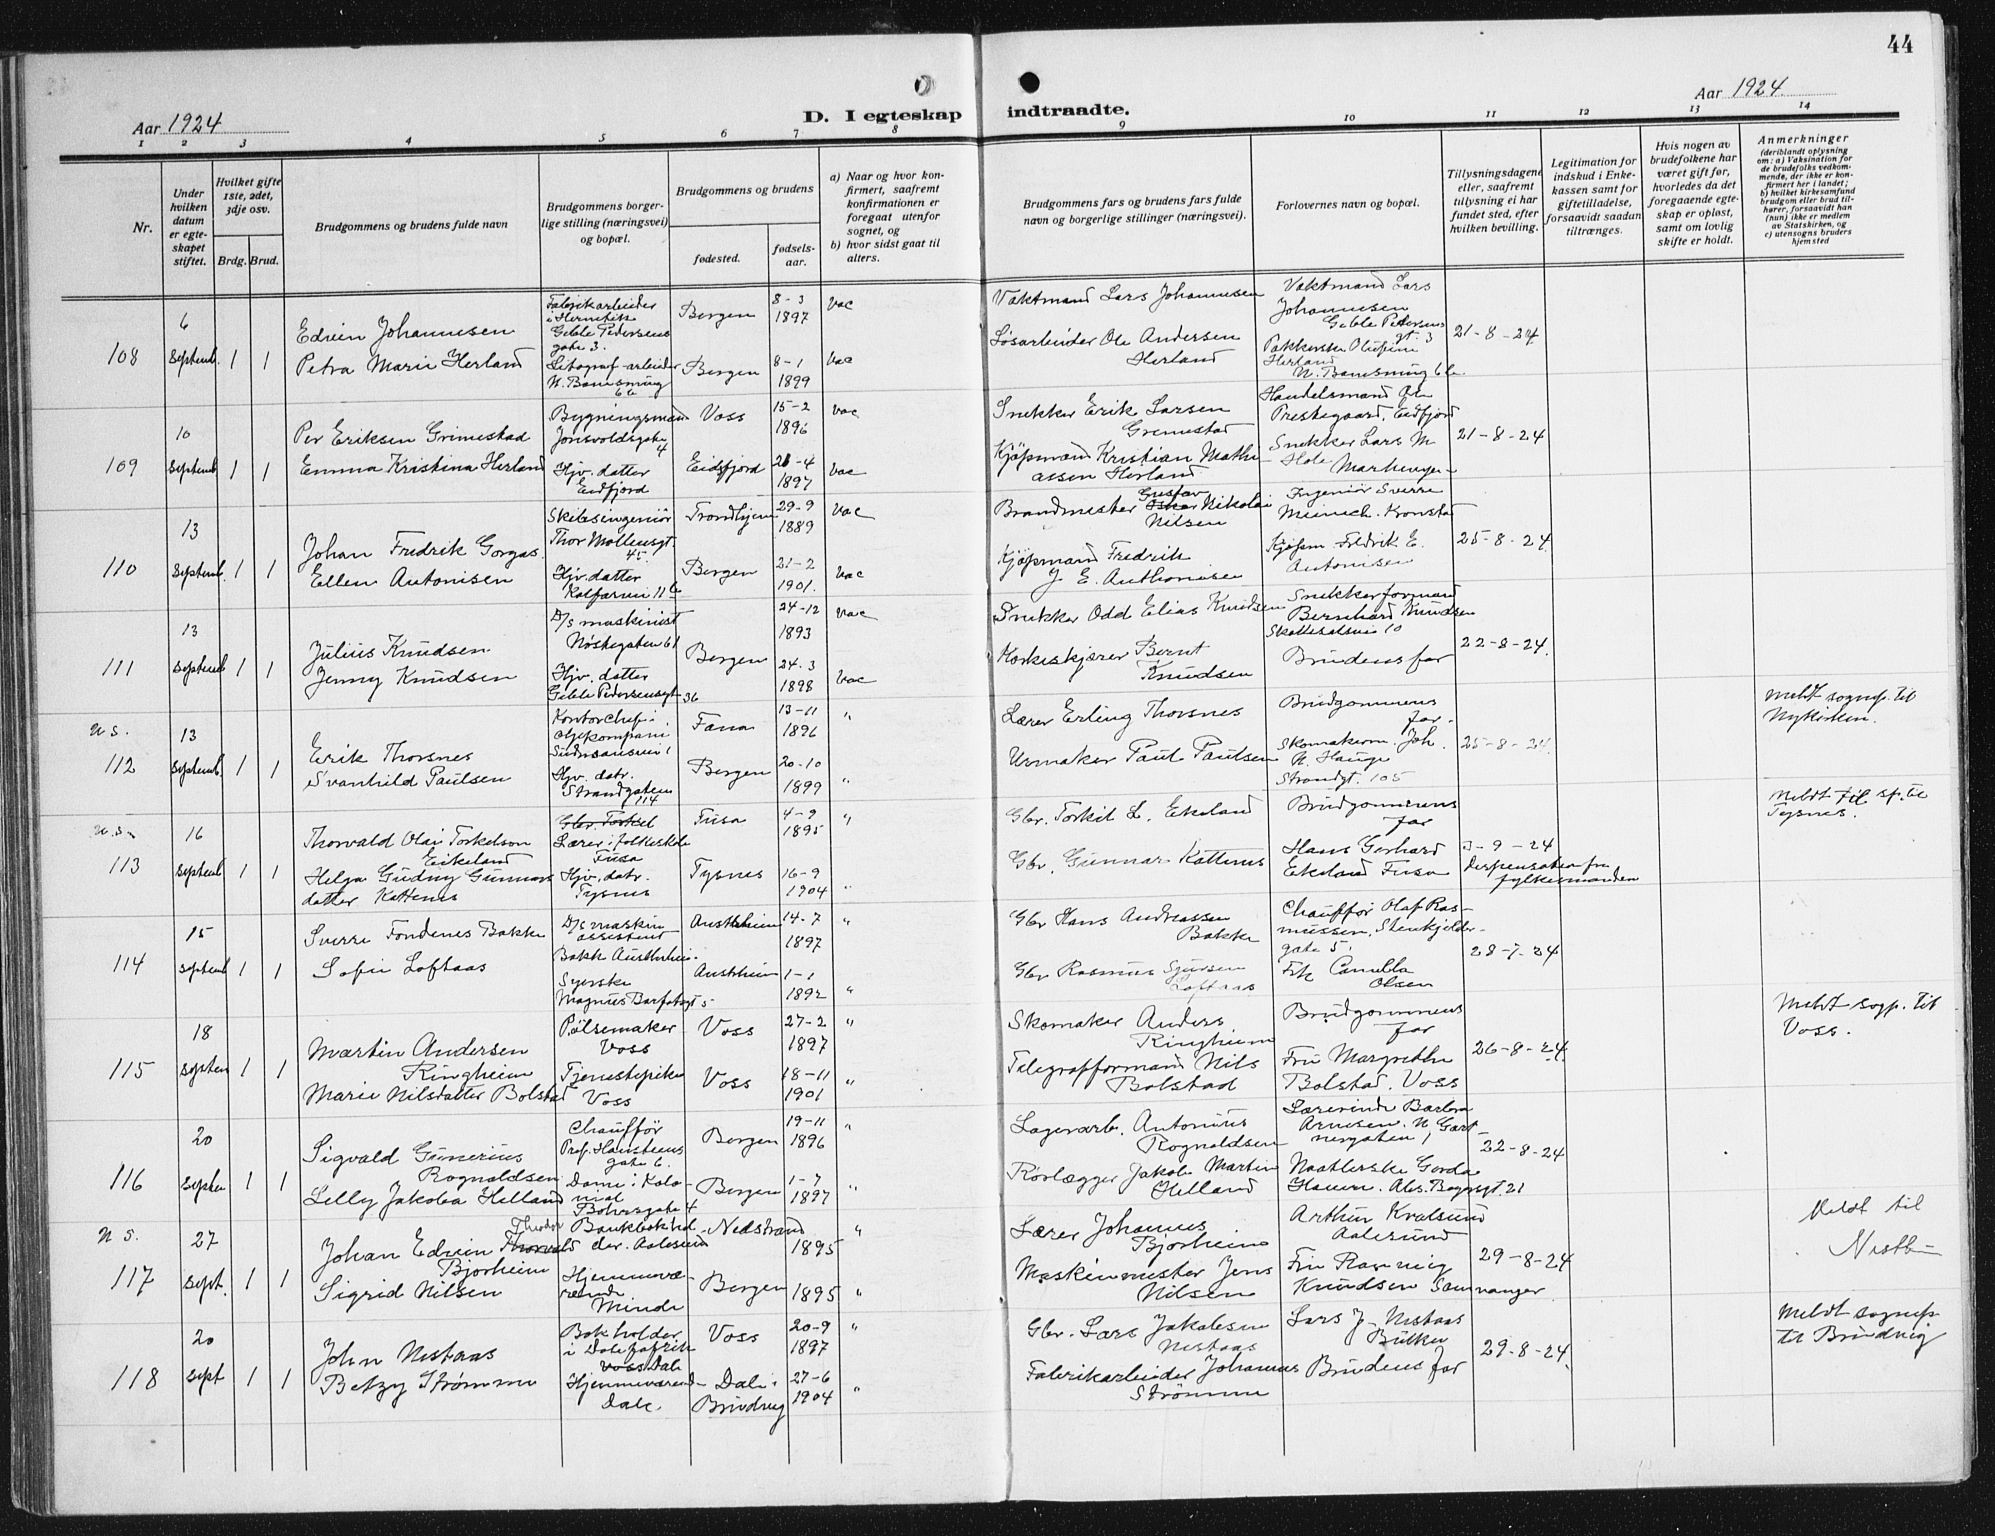 44
Aar 1924
D. I egteskap indtraadte.
Aar 1924
1 2 3 4 5 6 7 8 9 10 11 12 13 14
Nr.
Under hvilken datum er egteskapet stiftet.
Hvilket gifte 1ste, 2det, 3dje osv.
Brdg. Brud.
Brudgommens og brudens fulde navn
Brudgommens borgerlige stilling (næringsvei) og bopæl.
Brudgommens og brudens
fødested.
fødselsaar.
a) Naar og hvor konfirmert, saafremt konfirmationen er foregaat utenfor sognet, og
b) hvor sidst gaat til alters.
Brudgommens fars og brudens fars fulde navn og borgerlige stillinger (næringsvei).
Forlovernes navn og bopæl.
Tillysningsdagene eller, saafremt tillysning ei har fundet sted, efter hvilken bevilling.
Legitimation for indskud i Enkekassen samt for giftetilladelse, forsaavidt saadan tiltrænges.
Hvis nogen av brudefolkene har været gift før, hvorledes da det foregaaende egteskap er opløst, samt om lovlig skifte er holdt.
Anmerkninger
(deriblandt oplysning om: a) Vaksination for de brudefolks vedkommende, der ikke er konfirmert her i landet; b) hvilket kirkesamfund brudgom eller brud tilhører, forsaavidt han (hun) ikke er medlem av Statskirken, og c) utensogns bruders hjemsted
108
6 Septemb. 1 1
Edvin Johannesen
Petra Marie Herland
Fabrikarbeider i Hermetik Geble Pedersens gate 3.
Litograf-arbeider
Bergen 8-3 1897 vac
Bergen 8-1 1899 vac
Vaktmand Lars Johannesen
Løsarbeider Ole Andersen Herland
Vaktmand Lars Johannesen
Geble Pedersens gt. 3
Herland
21-8-24
109
10 Septemb 1 1
Per Eriksen Grimestad
Emma Kristina Herland
Bygningsmand
Hjv. datter Eidfjord
Voss 15-2 1896 vac
Eidfjord 4 1897 vac
Snekker Erik Larsen
Kjøpmand Kristian Mathiassen Herland
Handelsmand Ole Prestegaard, Eidfjord
Snekker Lars M.
21-8-24
110
13 Septemb. 1 1
Johan Fredrik Gorgas
Ellen Antonisen
Skibsingeniør Thor Møllensgt. 45
Hjv. datter Kalfarvei 11 b
Trondhjem 29-9 1889 vac
Bergen 21-2 1901. vac
Brandmester Gustav Nikolai Nilsen
Kjøpmand Fredrik J. E. Anthonisen
Ingeniør Sverre Kronstad
Kjøbm. Fredrik E. Antonisen
25-8-24
111
13 Septemb 1 1
Julius Knudsen
Jenny Knudsen
D/s maskinist Nøstegaten 61
Hjv. datter Geble Pedersensgt 36
Bergen
24-12 1893 vac
24-3 1898 vac
Snekker Odd Elias Knudsen
Bernt Knudsen
Snekkerformand Bernhard Knudsen
10
Brudens far
22-8-24.
u s.
112
13 Septemb. 1 1
Erik Thorsnes
Svanhild Paulsen
Kontorchef i oljekompani
Hjv. datr. Strandgaten 114
Fana 13-11 1896 "
Bergen 20-10 1899 "
Lærer Erling Thorsnes
Urmaker Paul Paulsen
Brudgommens far.
Skomakerm. Joh. N. Hauge Strandgt. 105
25-8-24.
Meldt sognep. til Nykirken.
u.s.
113
16 Septemb 1 1
Thorvald Olai Torkelson Eikeland
Helga Gudny Gunnarsdatter Kattenes
Lærer i folkeskole Fusa
Hjv. datr. Tysnes
Fusa 4-9 1895 "
Tysnes 16-9 1904 "
Gbr. Torkil L. Eikeland
Gbr. Gunnar Kattenes
Brudgommens far
Hans Gerhard Eikeland Fusa
3-9-24
Dispensation fra fylkesmanden
Meldt til sp. til Tysnes.
114
15 Septemb 1 1
Sverre Fondenes Bakke
Sofie Loftaas
D/s maskinassistent
Syerske Magnus Barfotsgt 5
Austrheim 14-7 1897 "
Austrheim 1-1 1892 "
Gbr Hans Andreassen Bakke
Gbr Rasmus Sjursen Loftaas
Chauffør Olaf Rasmussen, Stenkjeldergate 5.
Frk Camilla Olsen
28-7-24
115
18 Septem 1 1
Martin Andersen Ringheim
Marie Nilsdatter Bolstad
Pølsemaker Voss
Tjenestepike Voss
Voss 27-2 1897 "
Voss 18-11 1901 "
Skomaker Anders Ringheim
Telegrafformand Nils Bolstad
Brudgommens far
Fru Margrethe Bolstad. Voss
26-8-24
Meldt sogp. til Voss.
116
20 Septem 1 1
Sigvald Gunerius Rognaldsen
Lilly Jakoba Helland
Chauffør Prof. Hansteens gate 6.
Dame i Kolonial
Bergen 19-11 1896 "
Bergen 1-7 1897 "
Lagerarb. Antonius Rognaldsen
Rørlægger Jakob Martin Helland
Lærerinde Barbra Arnesen. N. Gartnergaten 1
22-8-24
u s.
117
27 Sept. 1 1
Johan Edvin Theodor Bjorheim
Sigrid Nilsen
Bankbokholder. Aalesund
Hjemmeværende Minde
Nedstrand 1895 "
Bergen 1895 "
Lærer Johannes Bjorheim
Maskinmester Jens Nilsen
Arthur Kvalsund Aalesund
Fru Knudsen Samnanger
29-8-24
Meldt til
118
20 Sept 1 1
John Nestaas
Betzy Strømme
Bokholder i Dale fabrik Dale
Hjemmeværend- Dale
Voss 20-9 1897 "
Dale i Bruvig 27-6 1904 "
Gbr. Lars Jakobsen Nestaas
Fabrikarbeider Johannes Strømme
Lars J. Nestaas
Brudens far
29-8-24.
Meldt sognep til Bruvig